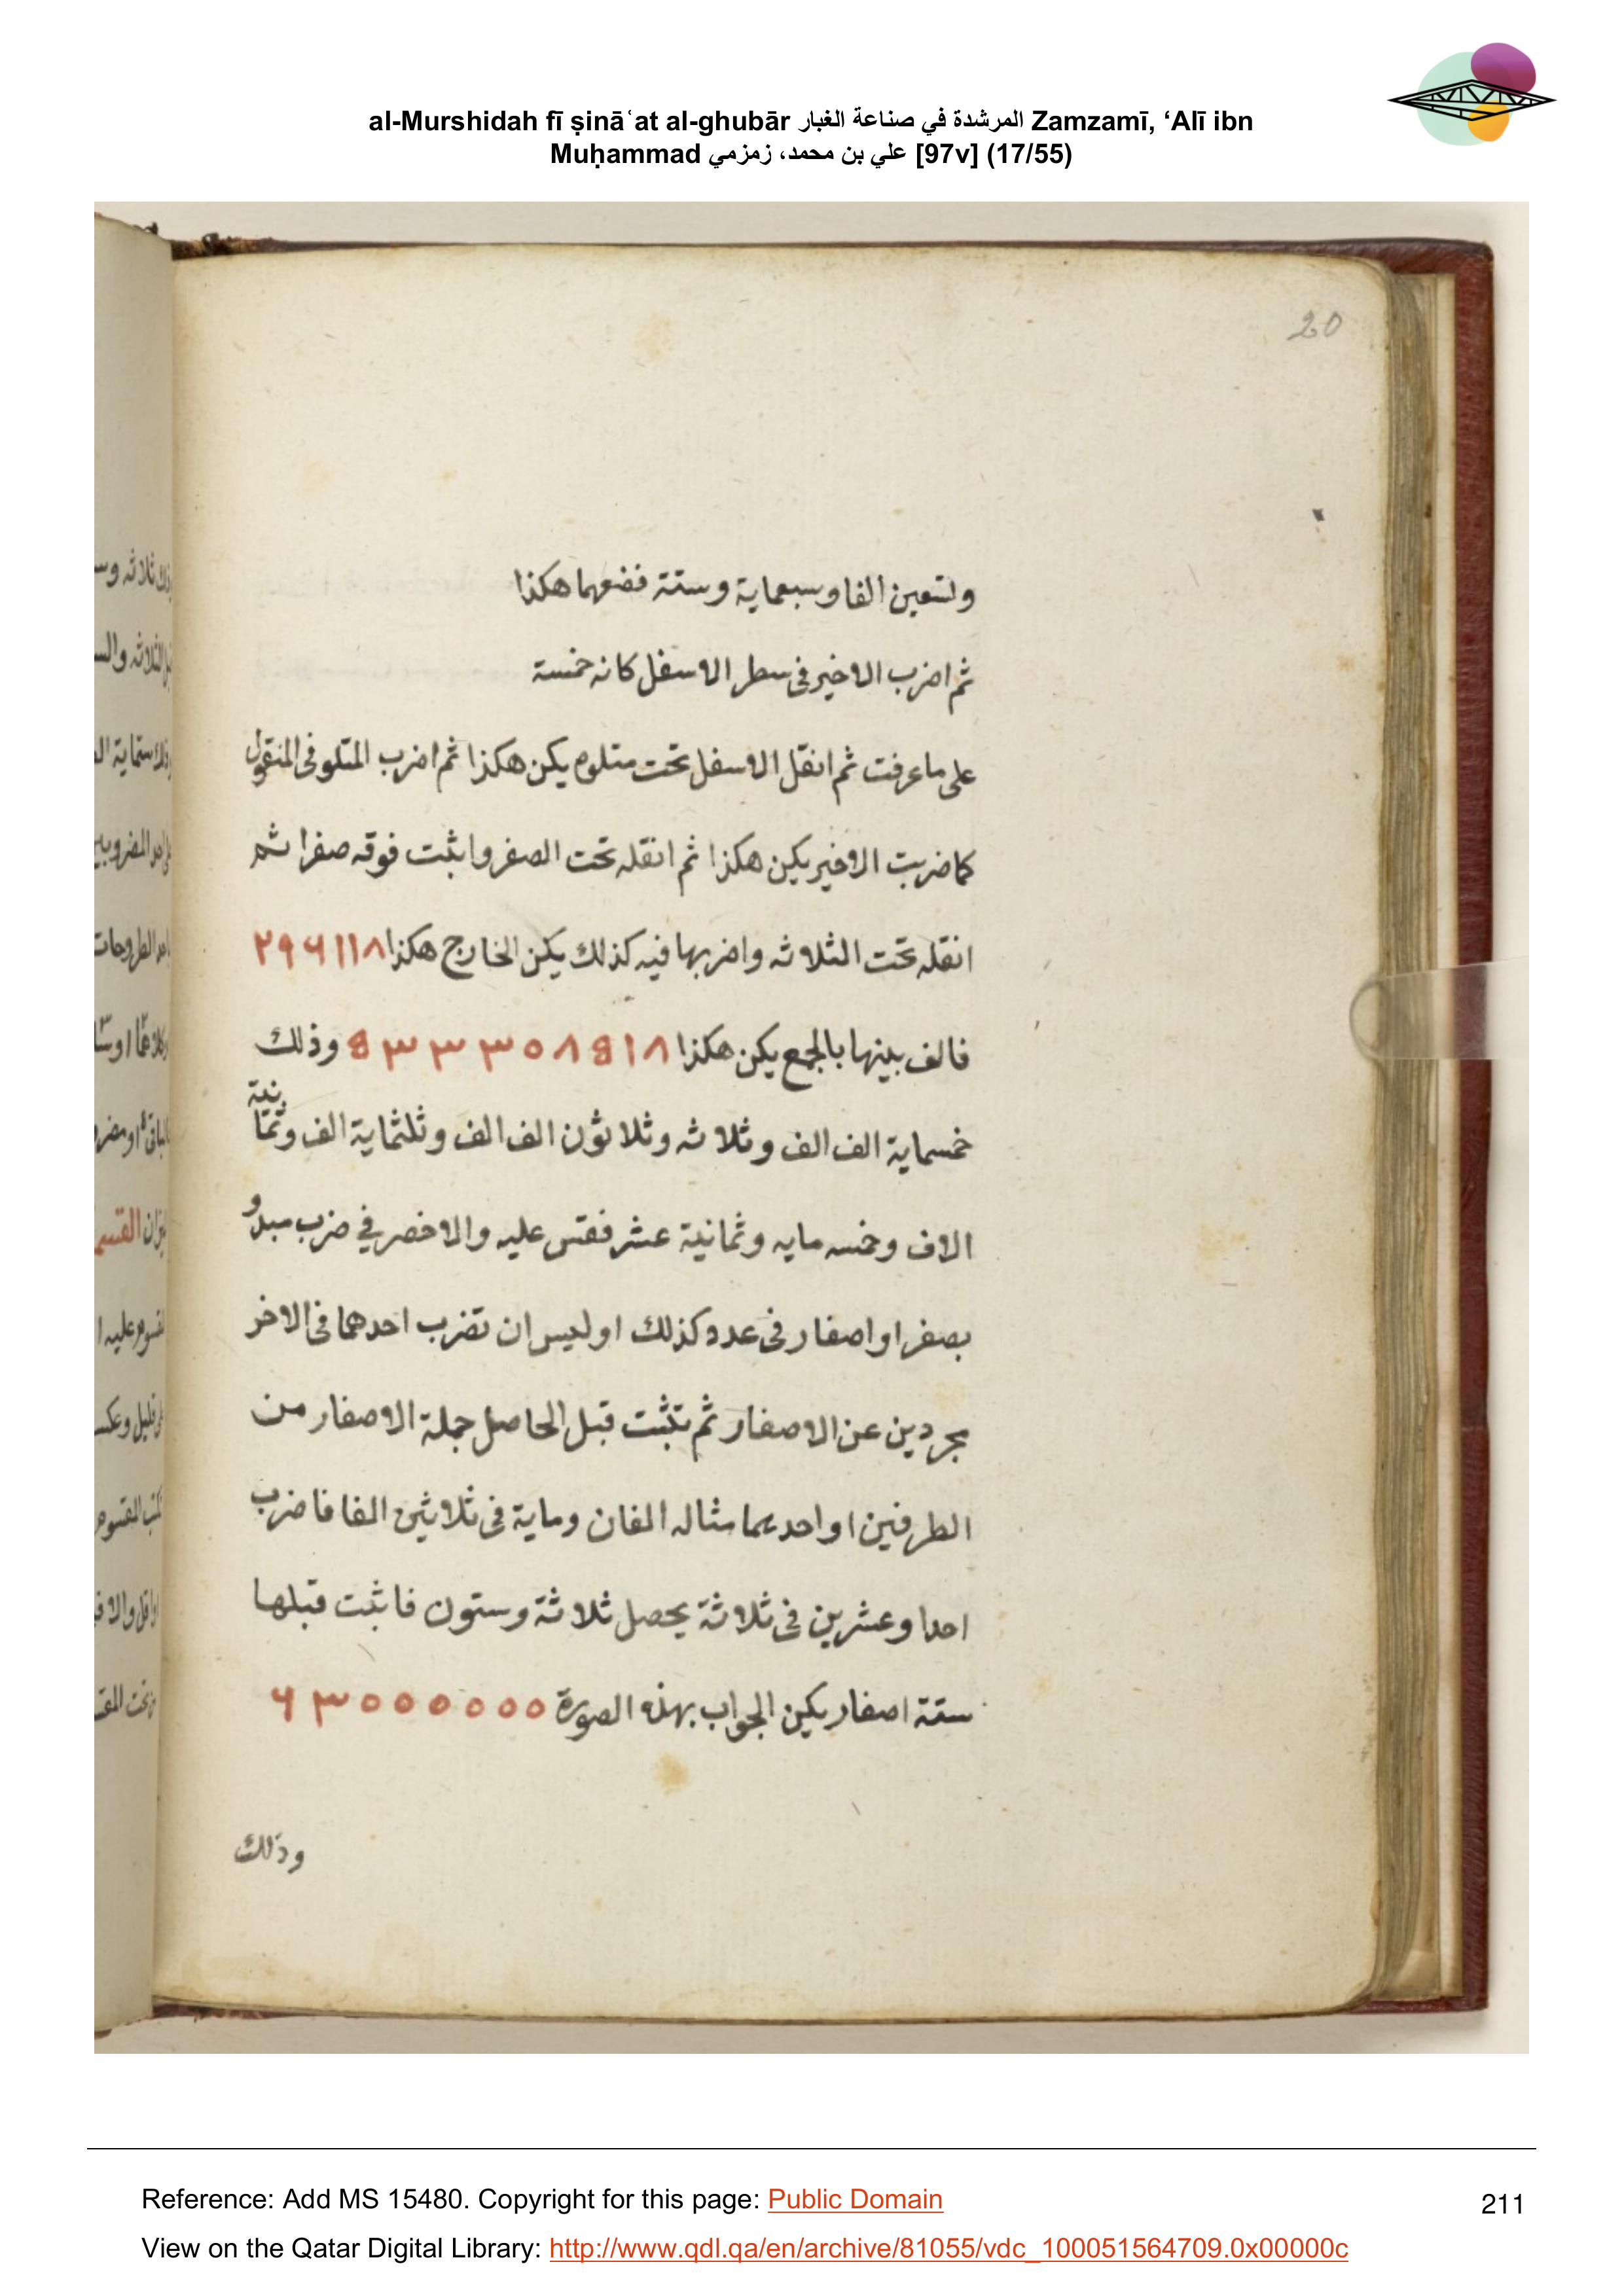 al-Murshidah fī ṣināʿat al-ghubār المرشدة في صناعة الغبار Zamzamī, ‘Alī ibn
Muḥammad علي بن محمد، زمزمي [97v] (17/55)
20
وتسعين الفا وسبعماية وستة فضعهما هكذا
ثم اضرب الاخير فى سطر الاسفل كانه خمسة
على ما عرفت ثم انقل الاسفل تحت متلوه يكن هكذا ثم اضرب المتلو فى المنقول
كما ضربت الاخير يكن هكذا ثم انقله تحت الصفر واثبت فوقه صفرا ثم
انقله تحت الثلاثه واضربها فيه كذلك يكن الخارج هكذا ٢٩٦١١٨
فالف بينها بالجمع يكن هكذا ٥٣٣٣٠٨٥١٨ وذلك
خمسماية الف الف وثلاثه وثلاثون الف الف وثلثماية الف وثمانية
الاف وخمسه مايه وثمانية عشر فقس عليه والاخصر في ضرب مبدو
بصفر او اصفار فى عدد كذلك او ليس ان تضرب احدهما فى الاخر
مجردين عن الاصفار ثم تثبت قبل الحاصل جملة الاصفار من
الطرفين او احدهما مثاله الفان وماية فى ثلاثين الفا فاضرب
احدا وعشرين فى ثلاثة يحصل ثلاثة وستون فاثبت قبلها
ستة اصفار يكن الجواب بهذه الصورة ٦٣٠٠٠٠٠٠
وذلك
Reference: Add MS 15480. Copyright for this page: Public Domain
View on the Qatar Digital Library: http://www.qdl.qa/en/archive/81055/vdc_100051564709.0x00000c
211